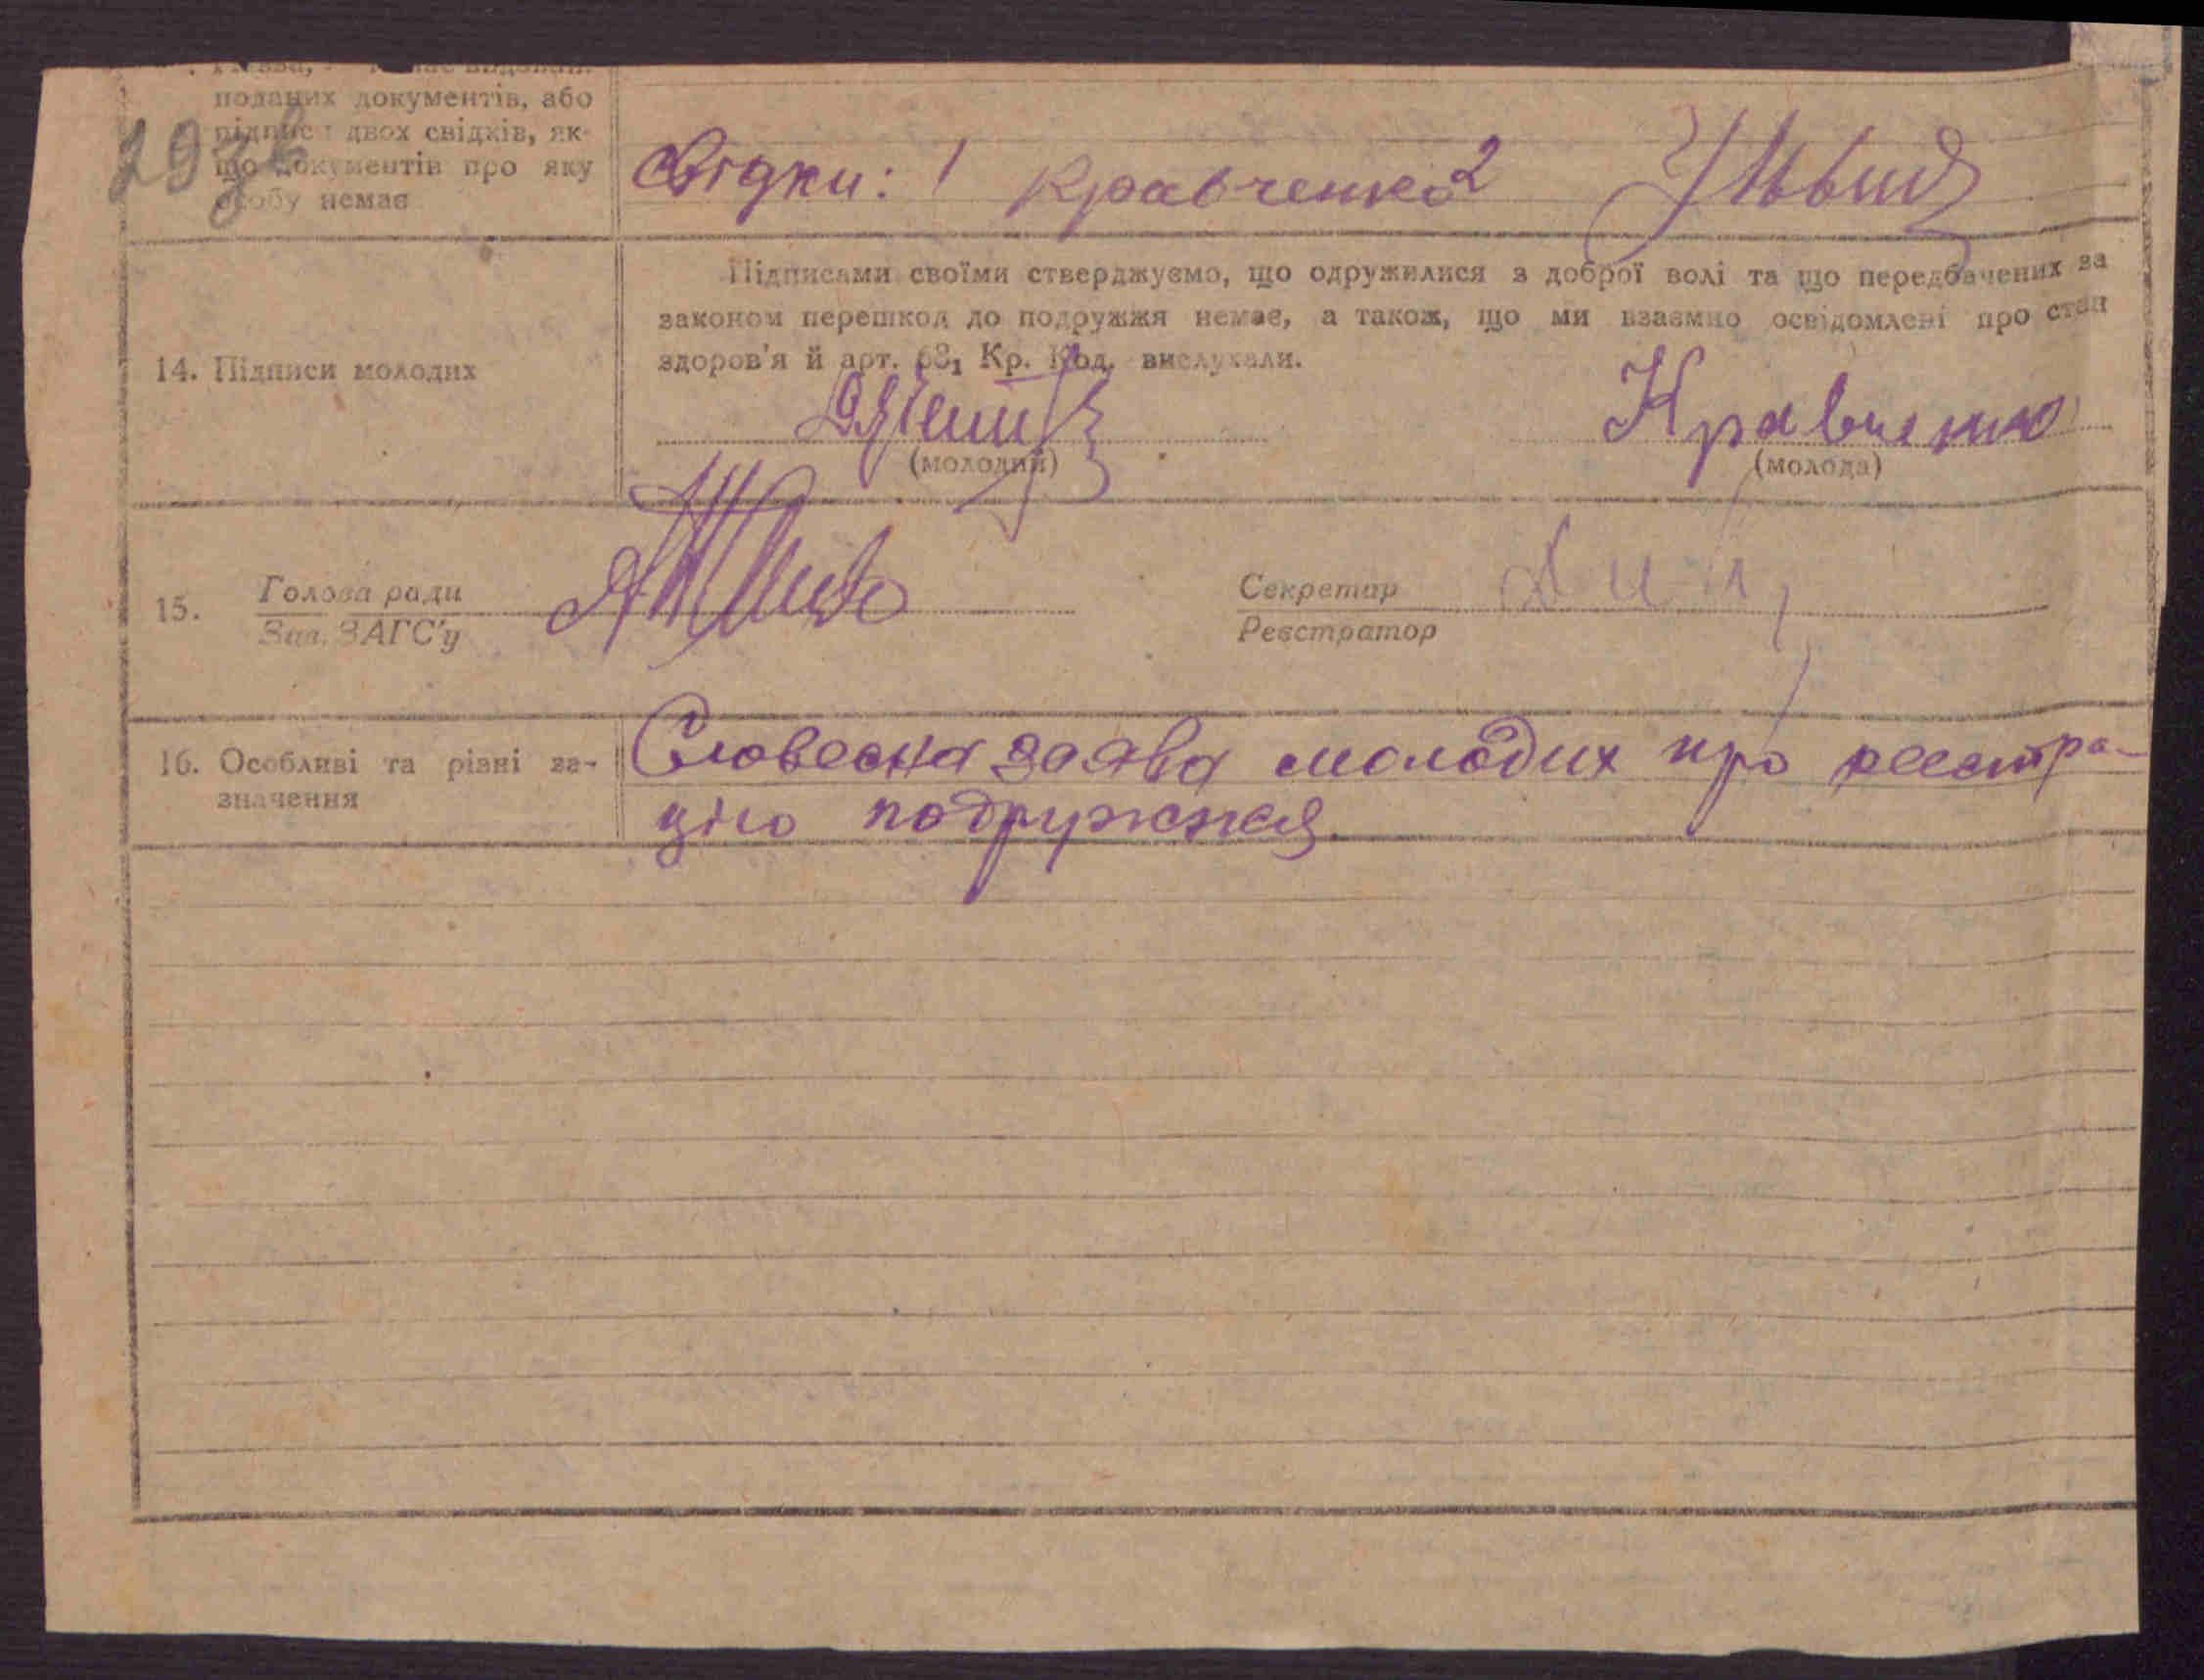 поданих документів, або
підписи двох свідків, як-
що документів про яку
особу немає
Свідки: 1 Кравченко 2
Підписами своїми стверджуємо, що одружилися з доброї волі та що передбачених за
законом перешкод до подружжя немає, а також, що ми взаємно освідомлені про стан
здоров'я й арт. 68₁ Кр. Код. вислухали.
14. Підписи молодих
Кравченко
(молодий) (молода)
15. Голова ради Секретар
Зав. ЗАГС'у Реєстратор
16. Особливі та різні за-
значення
Словесна заява молодих про реєстра-
цію подружжя.